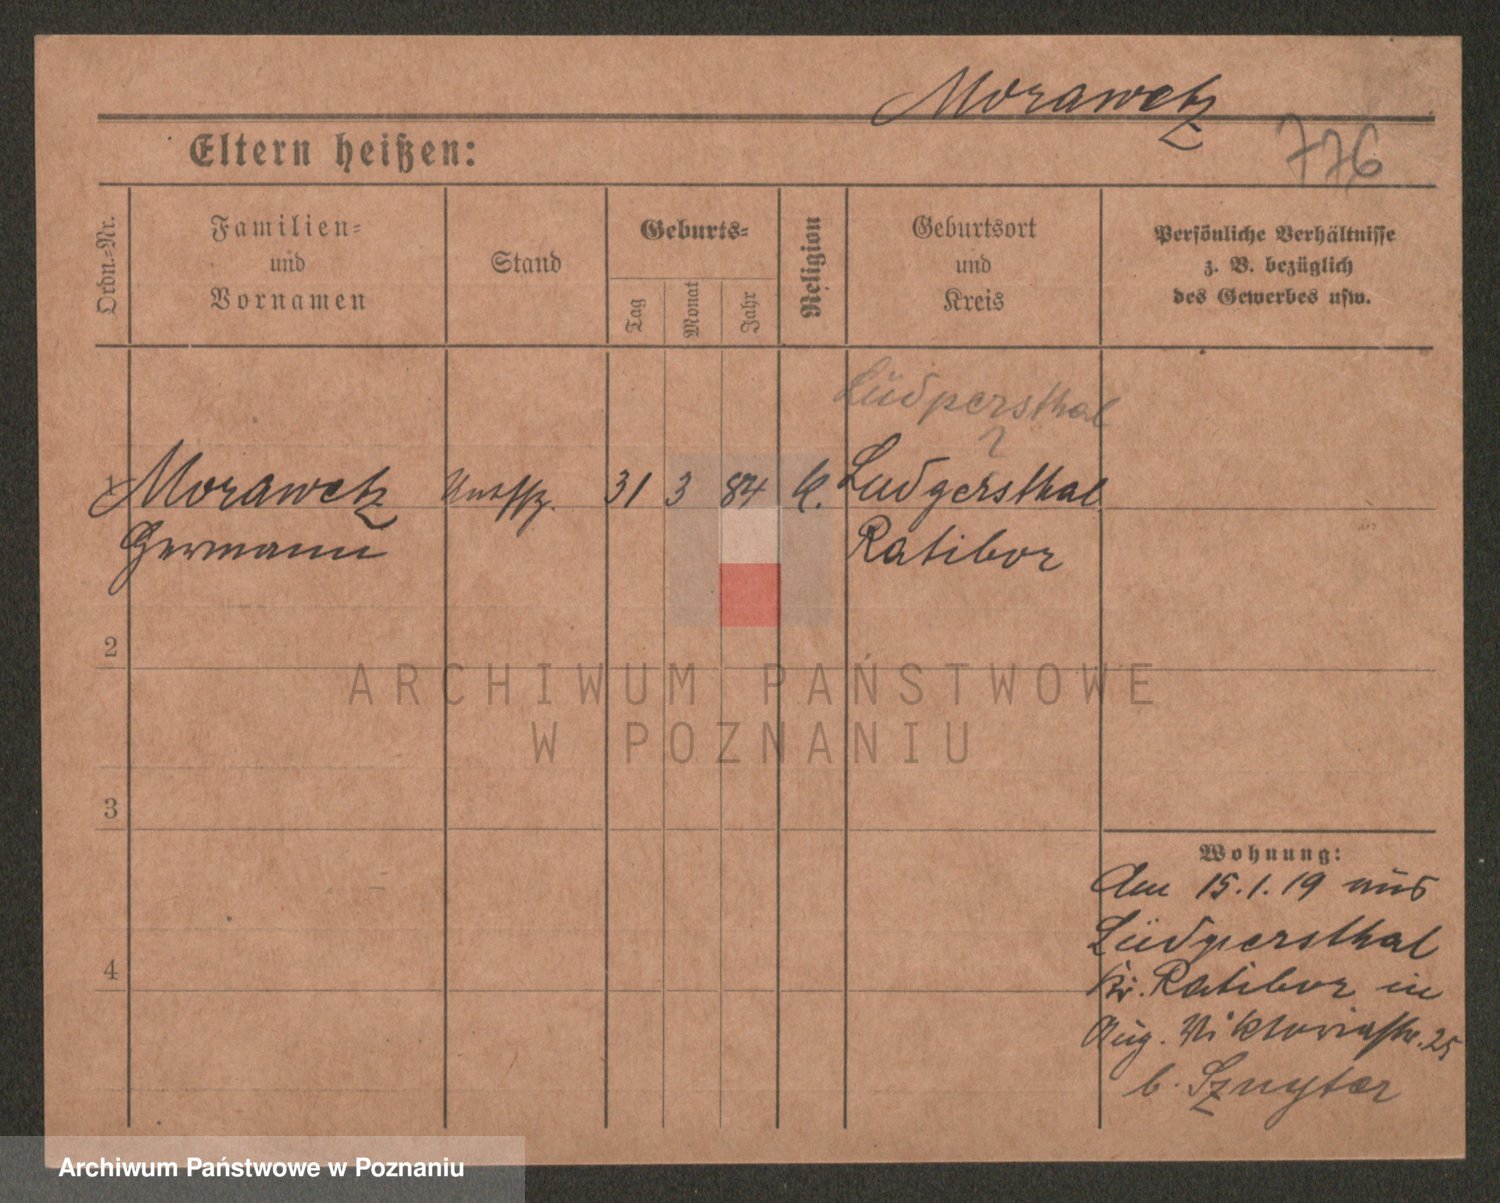 Morawetz
776
Eltern heißen:
Ordn.-Nr.
Familien-
und
Vornamen
Stand
Geburts-
Tag
Monat
Jahr
Religion
Geburtsort
und
Kreis
Persönliche Verhältnisse
z. B. bezüglich
des Gewerbes usw.
Lüdgersthal
?
1 Morawetz 31 3 84 k. Ludgersthal
Hermann Ratibor
2
3
4
Wohnung:
Am 15.1.19 aus
Lüdgersthal
Kr. Ratibor in
Aug. Viktoriastr. 25
b. Sznyter
ARCHIWUM PAŃSTWOWE
W POZNANIU
Archiwum Państwowe w Poznaniu